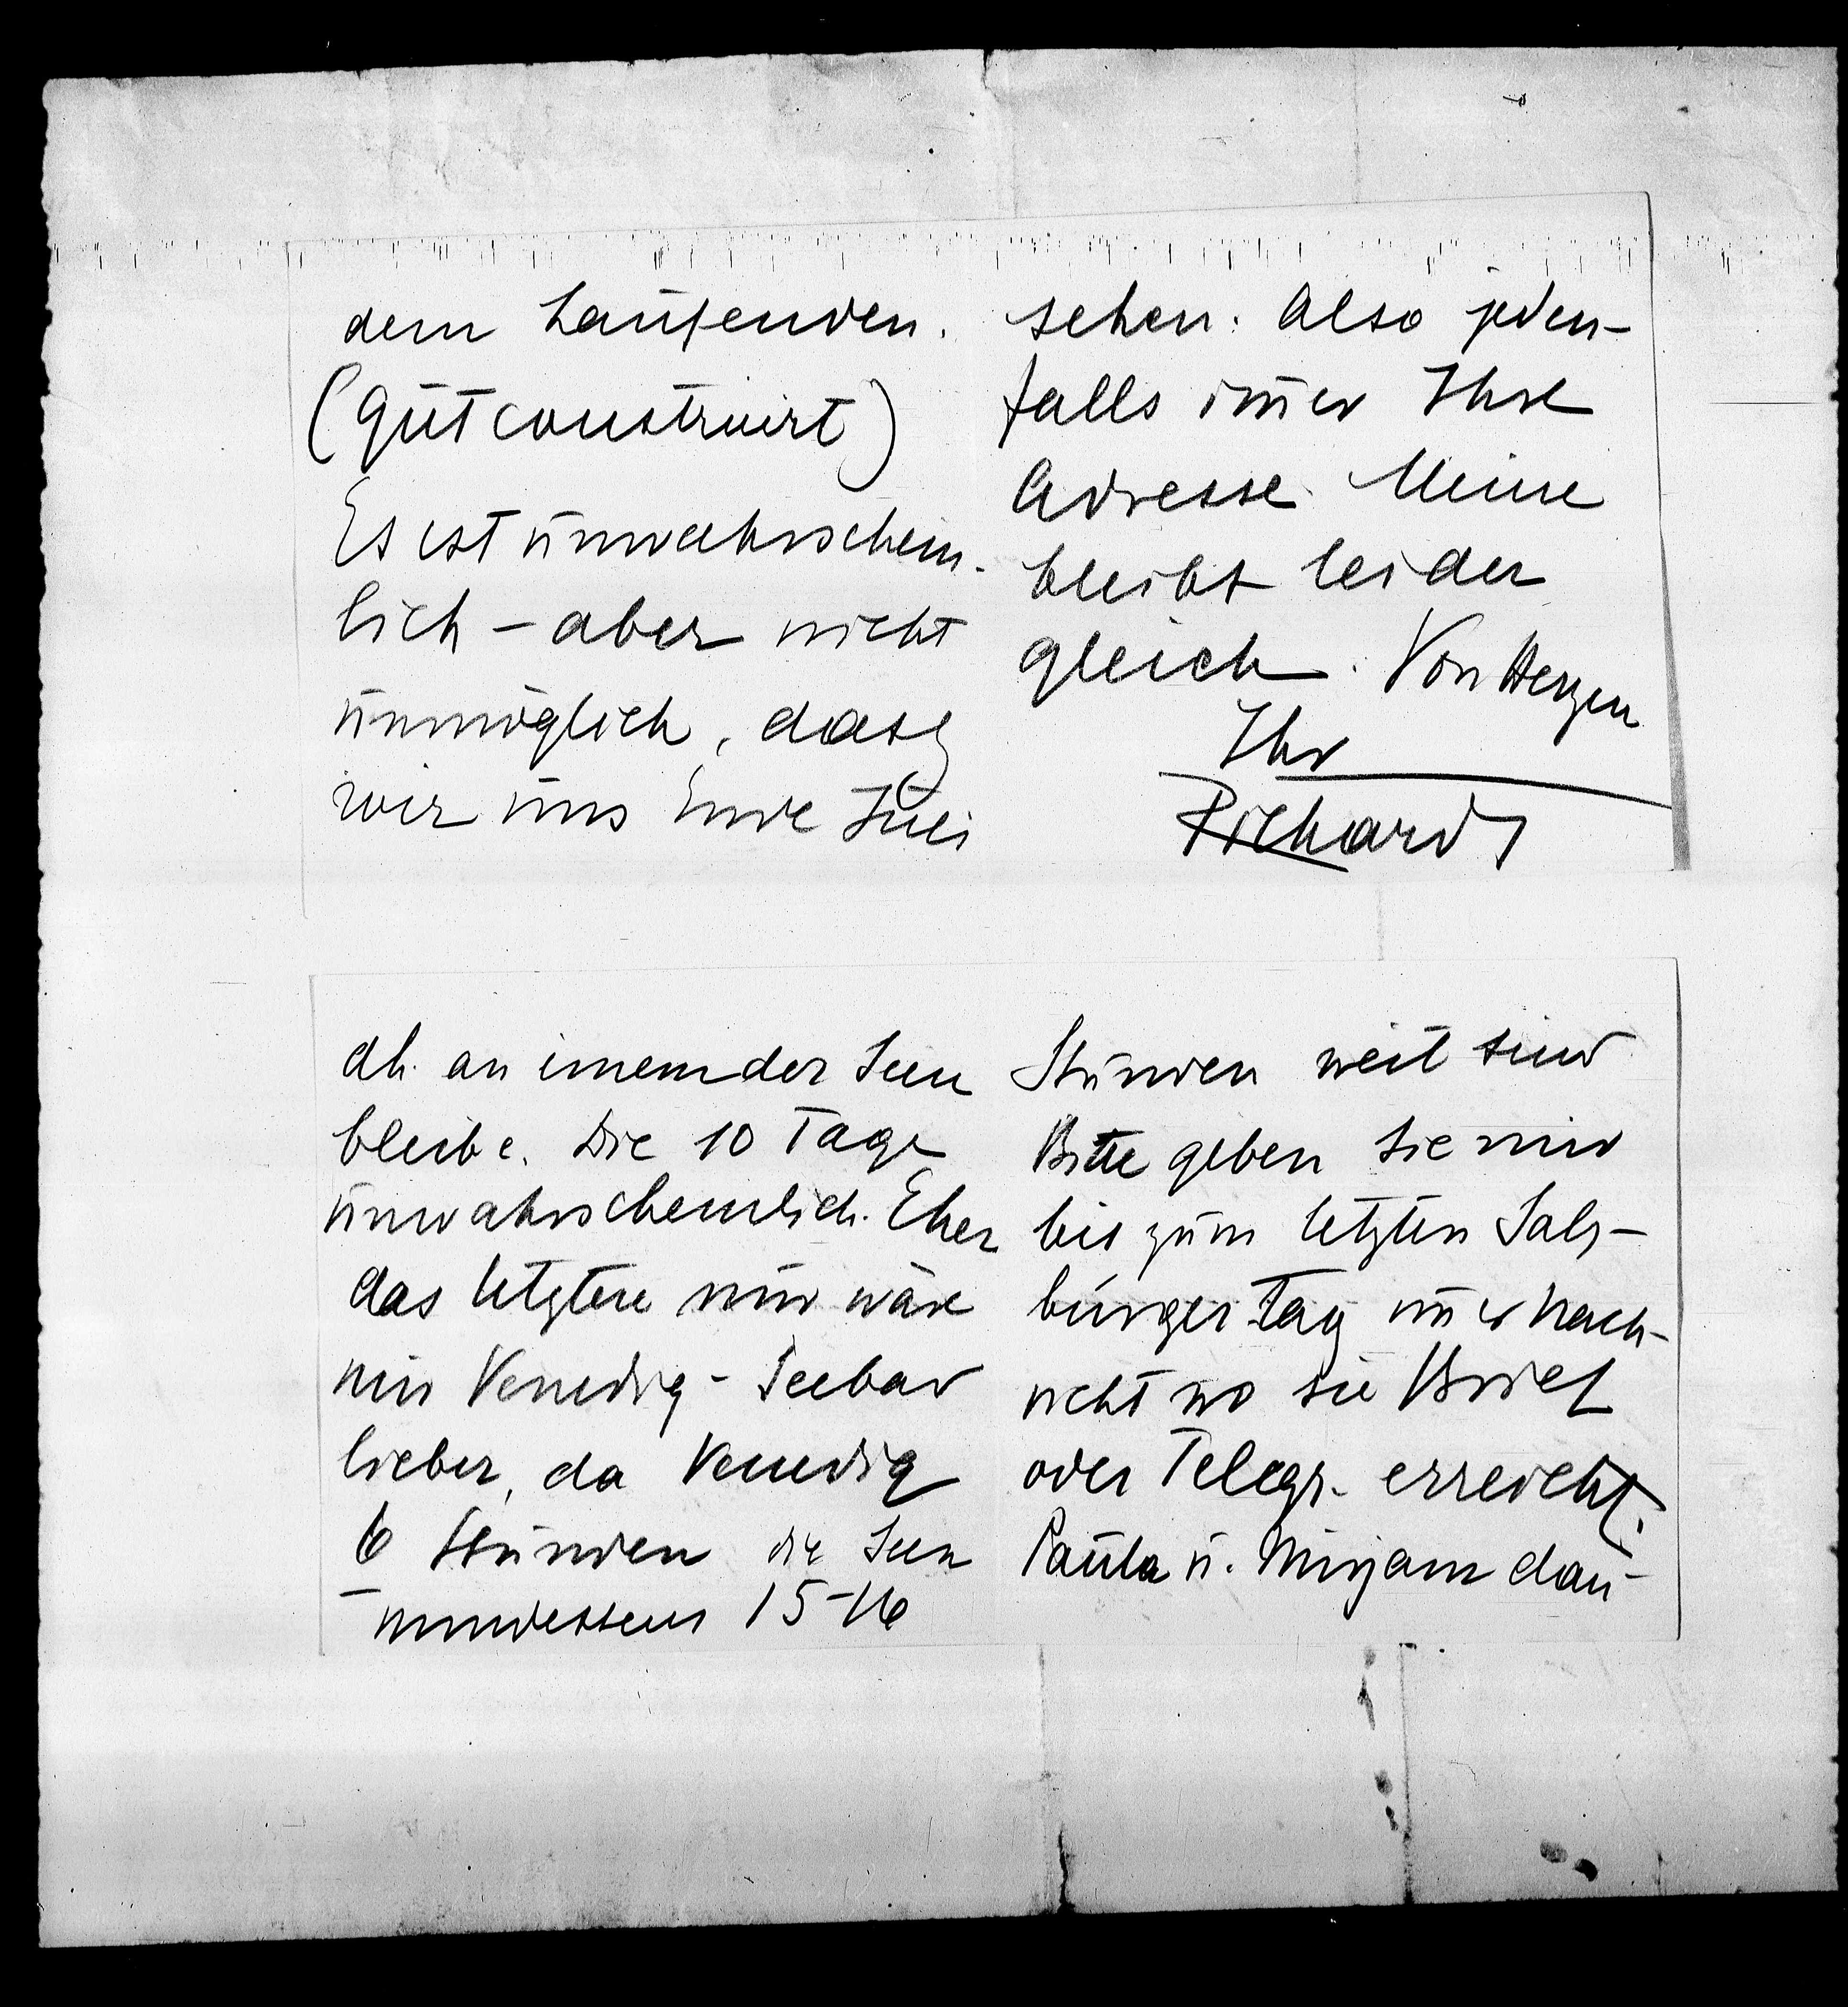 dem Laufenden.
(gut construirt)
Es ist unwahrschein-
lich – aber nicht
unmöglich, dass
wir uns Ende Juli
sehen. Also jeden-
falls im̄er Ihre
Adresse. Meine
bleibt leider
gleich. Von Herzen
Ihr
Richard
dh. an einem der Seen
bleibe. Die 10 Tage
unwahrscheinlich. Eher
das letztere nur wäre
mir Venedig – Seebad
lieber, da Venedig
6 Stunden die Seen
– mindestens 15–16
Stunden weit sind
Bitte geben Sie mir
bis zum letzten Salz-
burger Tag im̄er Nach-
richt wo sie Brief
oder Telegr. erreicht.
Paula u. Mirjam dan-